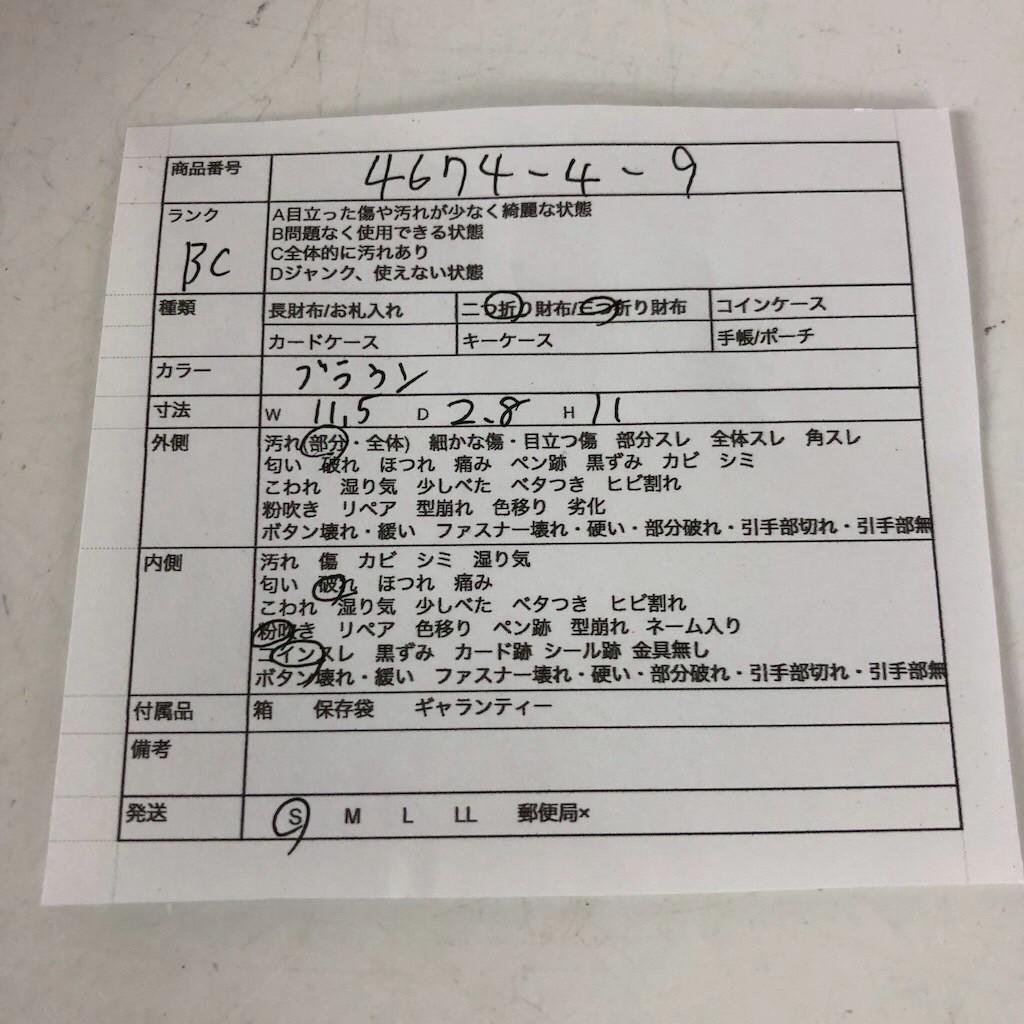 商品番号 4674-4-9
ランク BC
A目立った傷や汚れが少なく綺麗な状態
B問題なく使用できる状態
C全体的に汚れあり
Dジャンク、使えない状態
種類 長財布/お札入れ 二つ折り財布/三つ折り財布 コインケース
カードケース キーケース 手帳/ポーチ
カラー ブラウン
寸法 W 11.5 D 2.8 H 11
外側 汚れ(部分・全体) 細かな傷・目立つ傷 部分スレ 全体スレ 角スレ
匂い 破れ ほつれ 痛み ペン跡 黒ずみ カビ シミ
こわれ 湿り気 少しべた ベタつき ヒビ割れ
粉吹き リペア 型崩れ 色移り 劣化
ボタン壊れ・緩い ファスナー壊れ・硬い・部分破れ・引手部切れ・引手部無
内側 汚れ 傷 カビ シミ 湿り気
匂い 破れ ほつれ 痛み
こわれ 湿り気 少しべた ベタつき ヒビ割れ
粉吹き リペア 色移り ペン跡 型崩れ ネーム入り
コインスレ 黒ずみ カード跡 シール跡 金具無し
ボタン壊れ・緩い ファスナー壊れ・硬い・部分破れ・引手部切れ・引手部無
付属品 箱 保存袋 ギャランティー
備考
発送 S M L LL 郵便局×